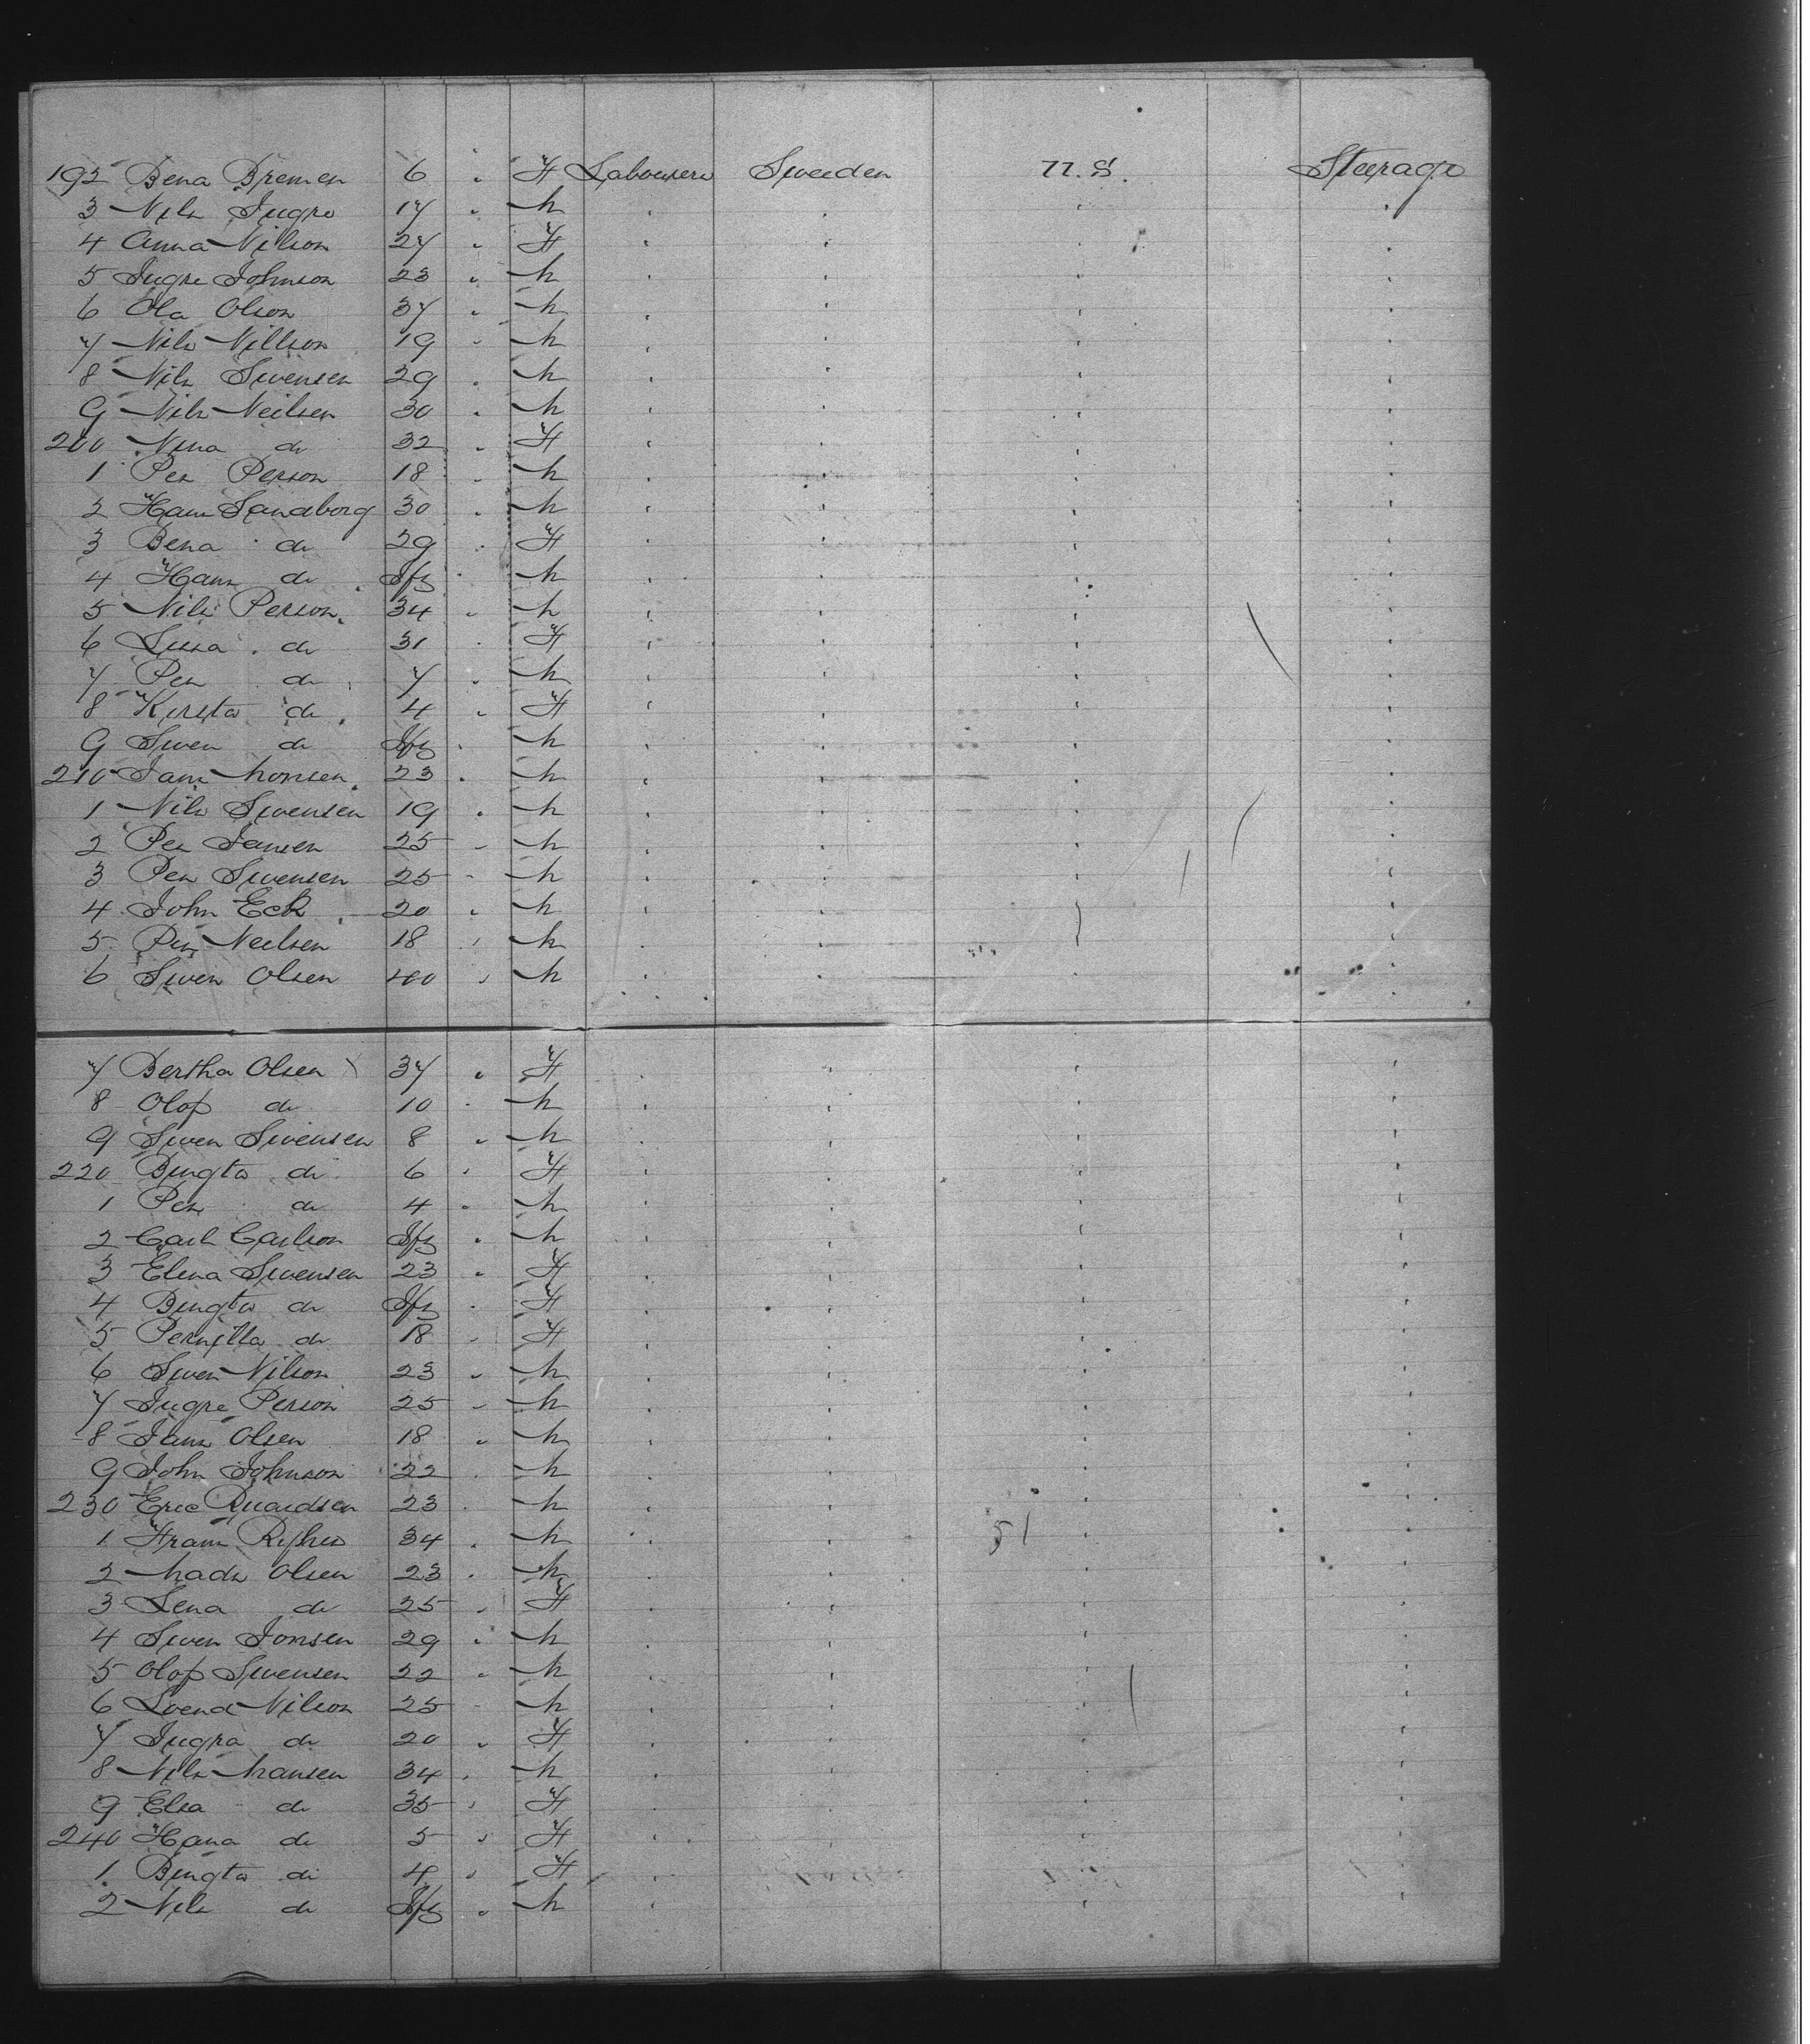 192 Bena Bremen 6 " F Labourers Sweeden U.S. Steerage
3 Nils Ingre 17 " M " " " "
4 Anna Nilson 27 " F " " " "
5 Ingre Johnson 23 " M " " " "
6 Ola Olson 37 " M " " " "
7 Nils Nillson 19 " M " " " "
8 Nils Swensen 29 " M " " " "
9 Nils Neilsen 30 " M " " " "
200 Nina do 32 " F " " " "
1 Per Person 18 " M " " " "
2 Hans Sandborg 30 " M " " " "
3 Bena do 29 " F " " " "
4 Hans do Inf " M " " " "
5 Nils Person 34 " M " " " "
6 Lissa do 31 " F " " " "
7 Per do 7 " M " " " "
8 Kersta do 4 " F " " " "
9 Swen do Inf " M " " " "
210 Jans Monsen 23 " M " " " "
1 Nils Swensen 19 " M " " " "
2 Per Jansen 25 " M " " " "
3 Per Swensen 25 " M " " " "
4 John Eck 20 " M " " " "
5 Per Neilsen 18 " M " " " "
6 Swen Olsen 40 " M " " " "
7 Bertha Olsen 37 " F " " " "
8 Olof do 10 " M " " " "
9 Swen Swensen 8 " M " " " "
220 Bengta do 6 " F " " " "
1 Per do 4 " M " " " "
2 Carl Carlson Inf " M " " " "
3 Elena Swensen 23 " F " " " "
4 Bengta do Inf " F " " " "
5 Pernilla do 18 " F " " " "
6 Swen Nilson 23 " M " " " "
7 Ingre Person 25 " M " " " "
8 Jans Olsen 18 " M " " " "
9 John Johnson 22 " M " " " "
230 Eric 23 " M " " " "
1 Frans 34 " M " " " "
51
2 Mads Olsen 23 " M " " " "
3 Lena do 25 " F " " " "
4 Swen Jonsen 29 " M " " " "
5 Olof Swensen 22 " M " " " "
6 Svend Nilson 25 " M " " " "
7 Ingra do 20 " F " " " "
8 Nils Mansen 34 " M " " " "
9 Elsa do 35 " F " " " "
240 Hana do 5 " F " " " "
1 Bengta do 4 " F " " " "
2 Nils do Inf " M " " " "